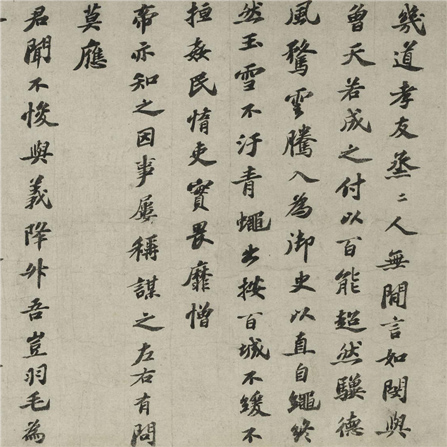 幾道孝友烝〻人無間言如閔與
曾天若成之付以百能超然驥德
風騖雲騰入為御史以直自繩終
然玉雪不汙青蠅出按百城不緩不
姦民惰吏實畏靡憎
帝亦知之因事屢稱謀之左右有問
莫應
君聞不悛與義降升吾豈羽毛為